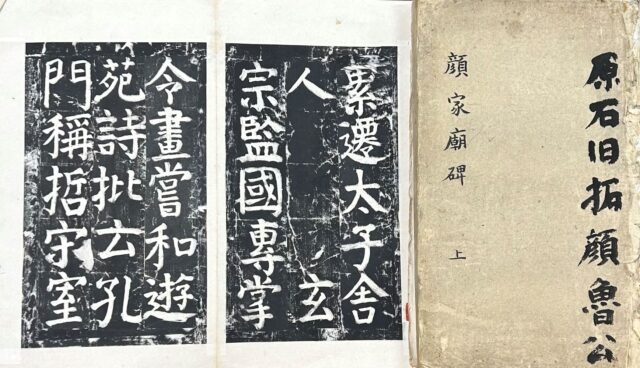 原石旧拓顔魯公
顔家廟碑
上
累遷太子舍
人 玄
宗監國專掌
令畫嘗和遊
苑詩批云孔
門稱哲宋室